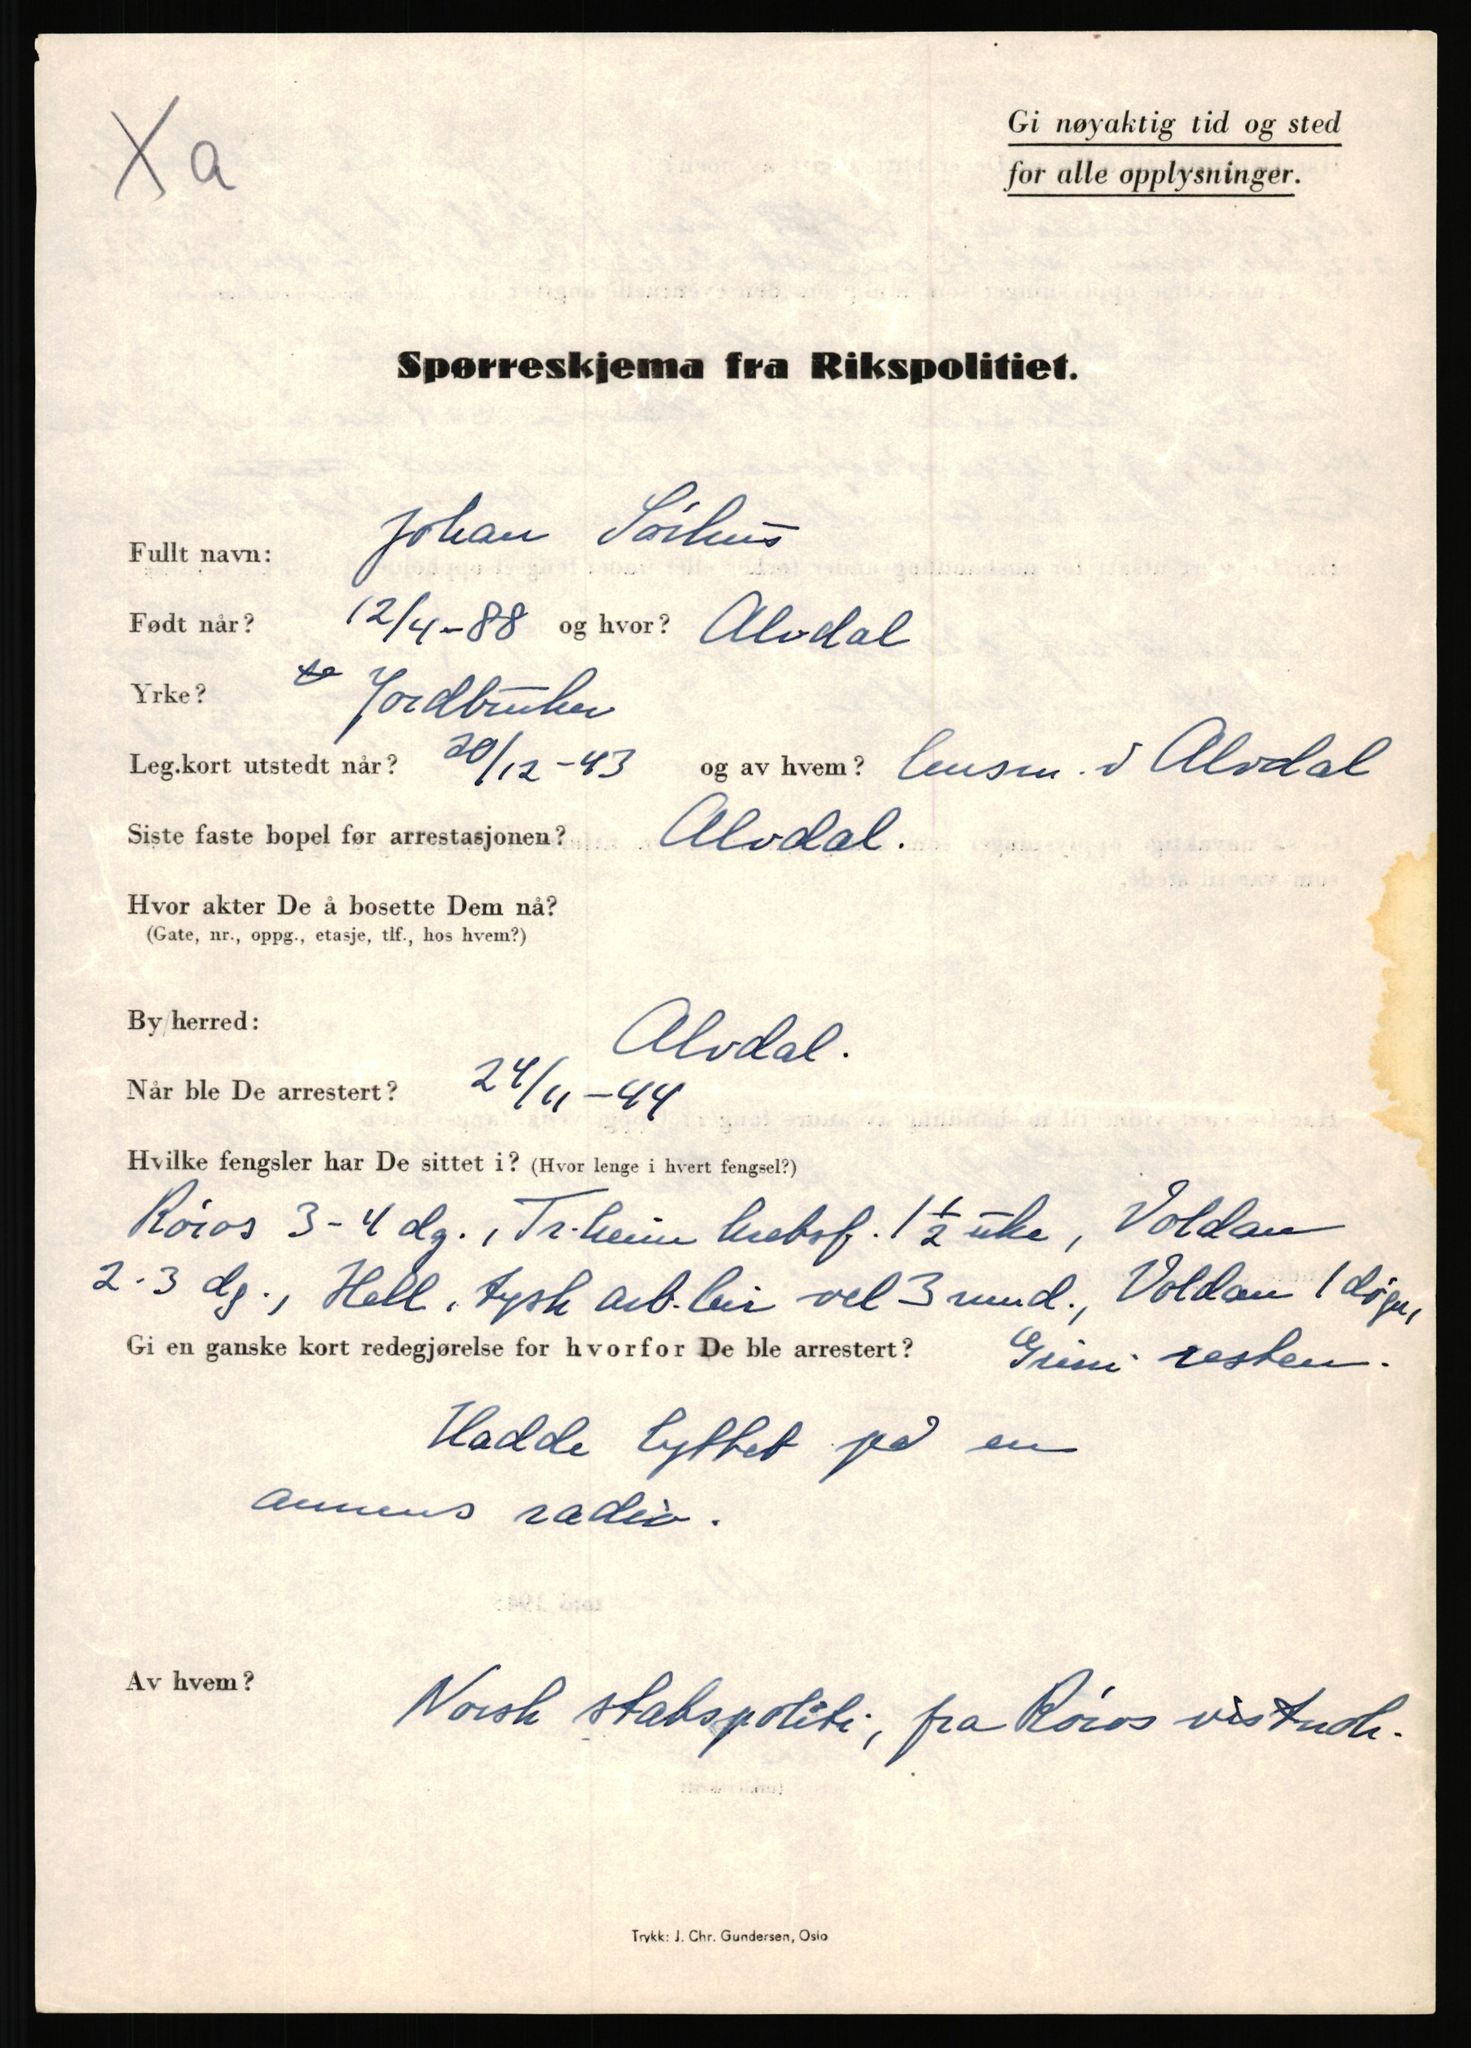 Xa
Gi nøyaktig tid og sted
for alle opplysninger.
Spørreskjema fra Rikspolitiet.
Fullt navn: Johan Sörhus
Født når? 12/4-88 og hvor? Alvdal
Yrke? Jordbruker
Leg.kort utstedt når? 20/12-43 og av hvem? lensm. i Alvdal
Siste faste bopel før arrestasjonen? Alvdal.
Hvor akter De å bosette Dem nå?
(Gate, nr., oppg., etasje, tlf., hos hvem?)
By/herred: Alvdal.
Når ble De arrestert? 24/11-44
Hvilke fengsler har De sittet i? (Hvor lenge i hvert fengsel?)
Röros 3-4 dg., Tr.heim kretsf. 1 1/2 uke, Voldan
2-3 dg., Hell, tysk arb.leir vel 3 mnd., Voldan 1 døgn,
Gi en ganske kort redegjørelse for hvorfor De ble arrestert? Grini resten.
Hadde lyttet på en
annens radio.
Av hvem? Norsk statspoliti, fra Röros vistnok.
Trykk: J. Chr. Gundersen, Oslo